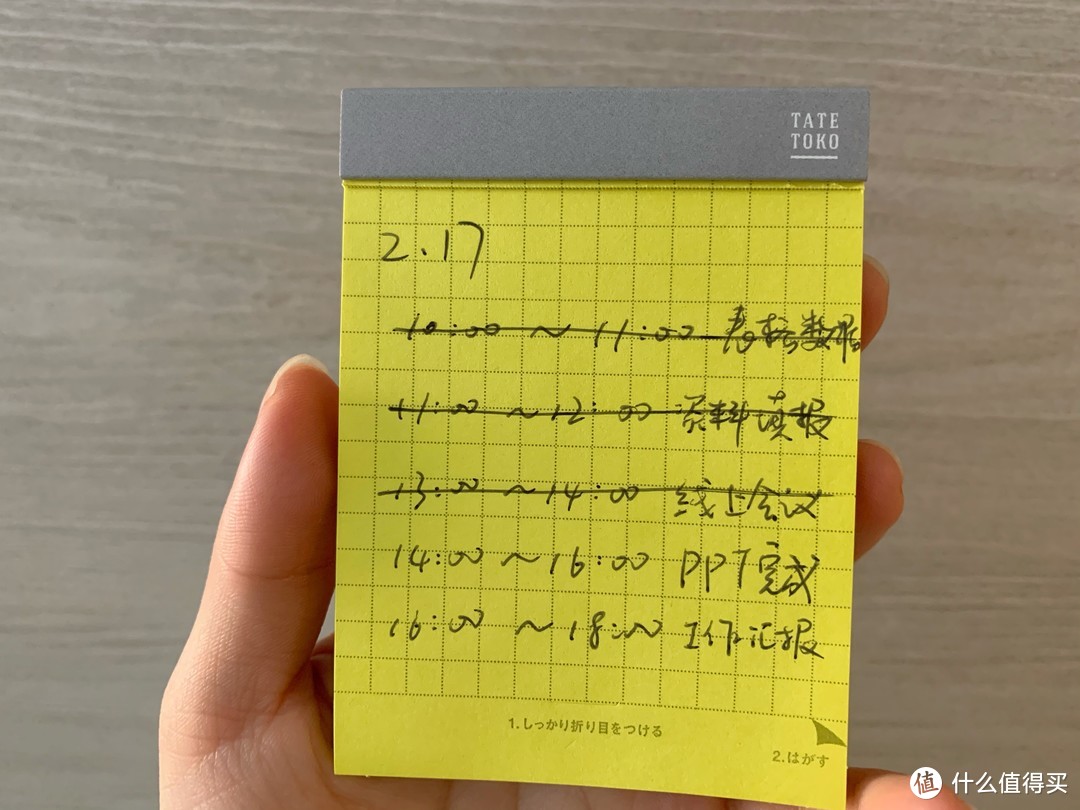 TATE
TOKO
2.17
10:00 ~ 11:00 表格数据
11:00 ~ 12:00 资料填报
13:00 ~ 14:00 线上会议
14:00 ~ 16:00 PPT完成
16:00 ~ 18:00 工作汇报
1.しっかり折り目をつける
2.はがす
值 什么值得买